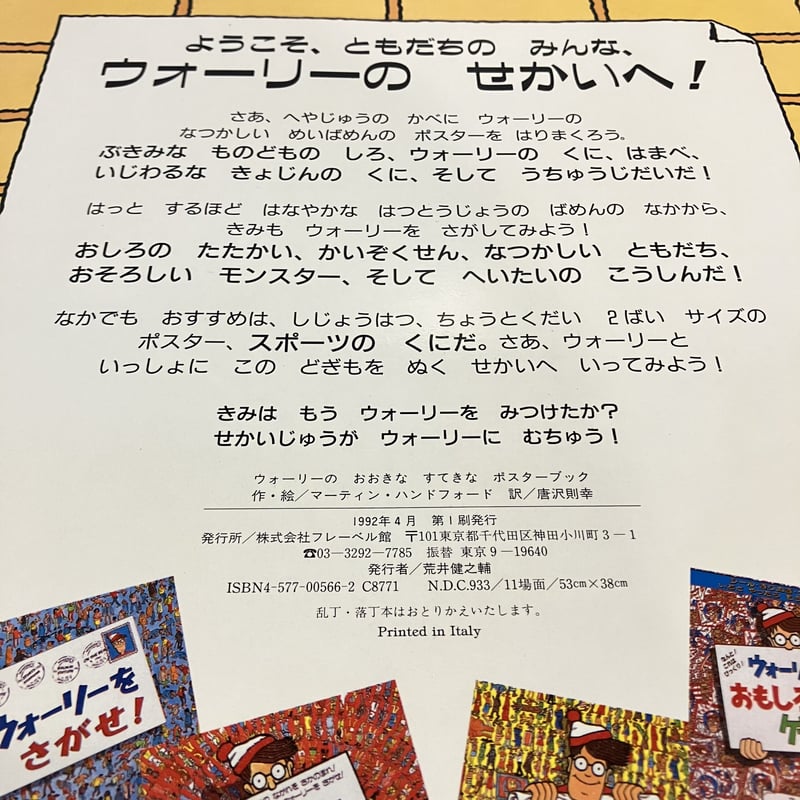 ようこそ、ともだちの　みんな、
ウォーリーの　せかいへ！
さあ、へやじゅうの　かべに　ウォーリーの
なつかしい　めいばめんの　ポスターを　はりまくろう。
ぶきみな　ものどもの　しろ、ウォーリーの　くに、はまべ、
いじわるな　きょじんの　くに、そして　うちゅうじだいだ！
はっと　するほど　はなやかな　はつとうじょうの　ばめんの　なかから、
きみも　ウォーリーを　さがしてみよう！
おしろの　たたかい、かいぞくせん、なつかしい　ともだち、
おそろしい　モンスター、そして　へいたいの　こうしんだ！
なかでも　おすすめは、しじょうはつ、ちょうとくだい　2ばい　サイズの
ポスター、スポーツの　くにだ。さあ、ウォーリーと
いっしょに　この　どぎもを　ぬく　せかいへ　いってみよう！
きみは　もう　ウォーリーを　みつけたか？
せかいじゅうが　ウォーリーに　むちゅう！
ウォーリーの　おおきな　すてきな　ポスターブック
作・絵／マーティン・ハンドフォード　訳／唐沢則幸
1992年4月　第1刷発行
発行所／株式会社フレーベル館　〒101東京都千代田区神田小川町3－1
☎03―3292―7785　振替 東京9－19640
発行者／荒井健之輔
ISBN4-577-00566-2 C8771　N.D.C.933／11場面／53cm×38cm
乱丁・落丁本はおとりかえいたします。
Printed in Italy
ウォーリーを
さがせ！
なんと！
これは
びっくり！
ウォーリ
おもしろ
ゲ